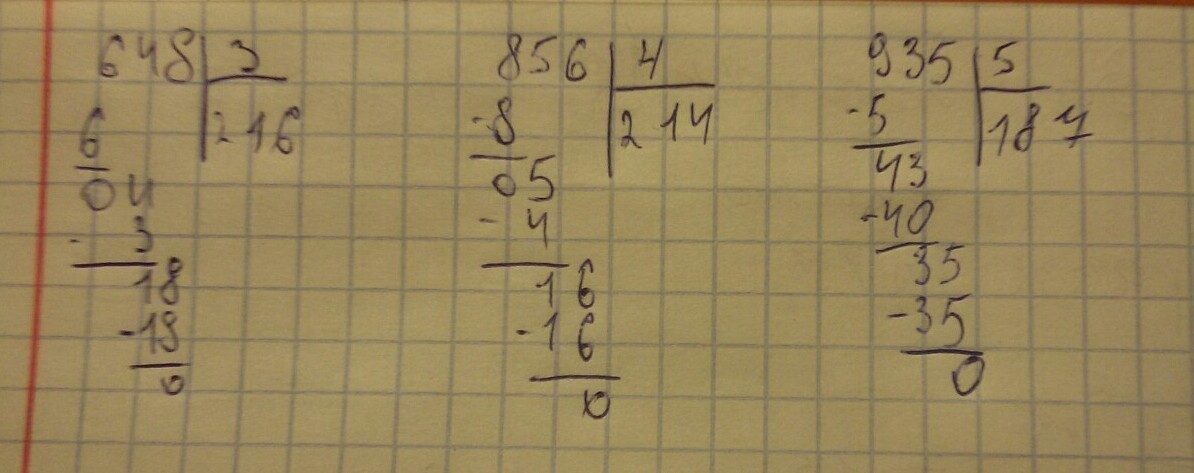 648 3
6 216
04
- 3
18
-18
0
856 4
-8 214
05
- 4
16
-16
0
935 5
-5 187
43
-40
35
-35
0